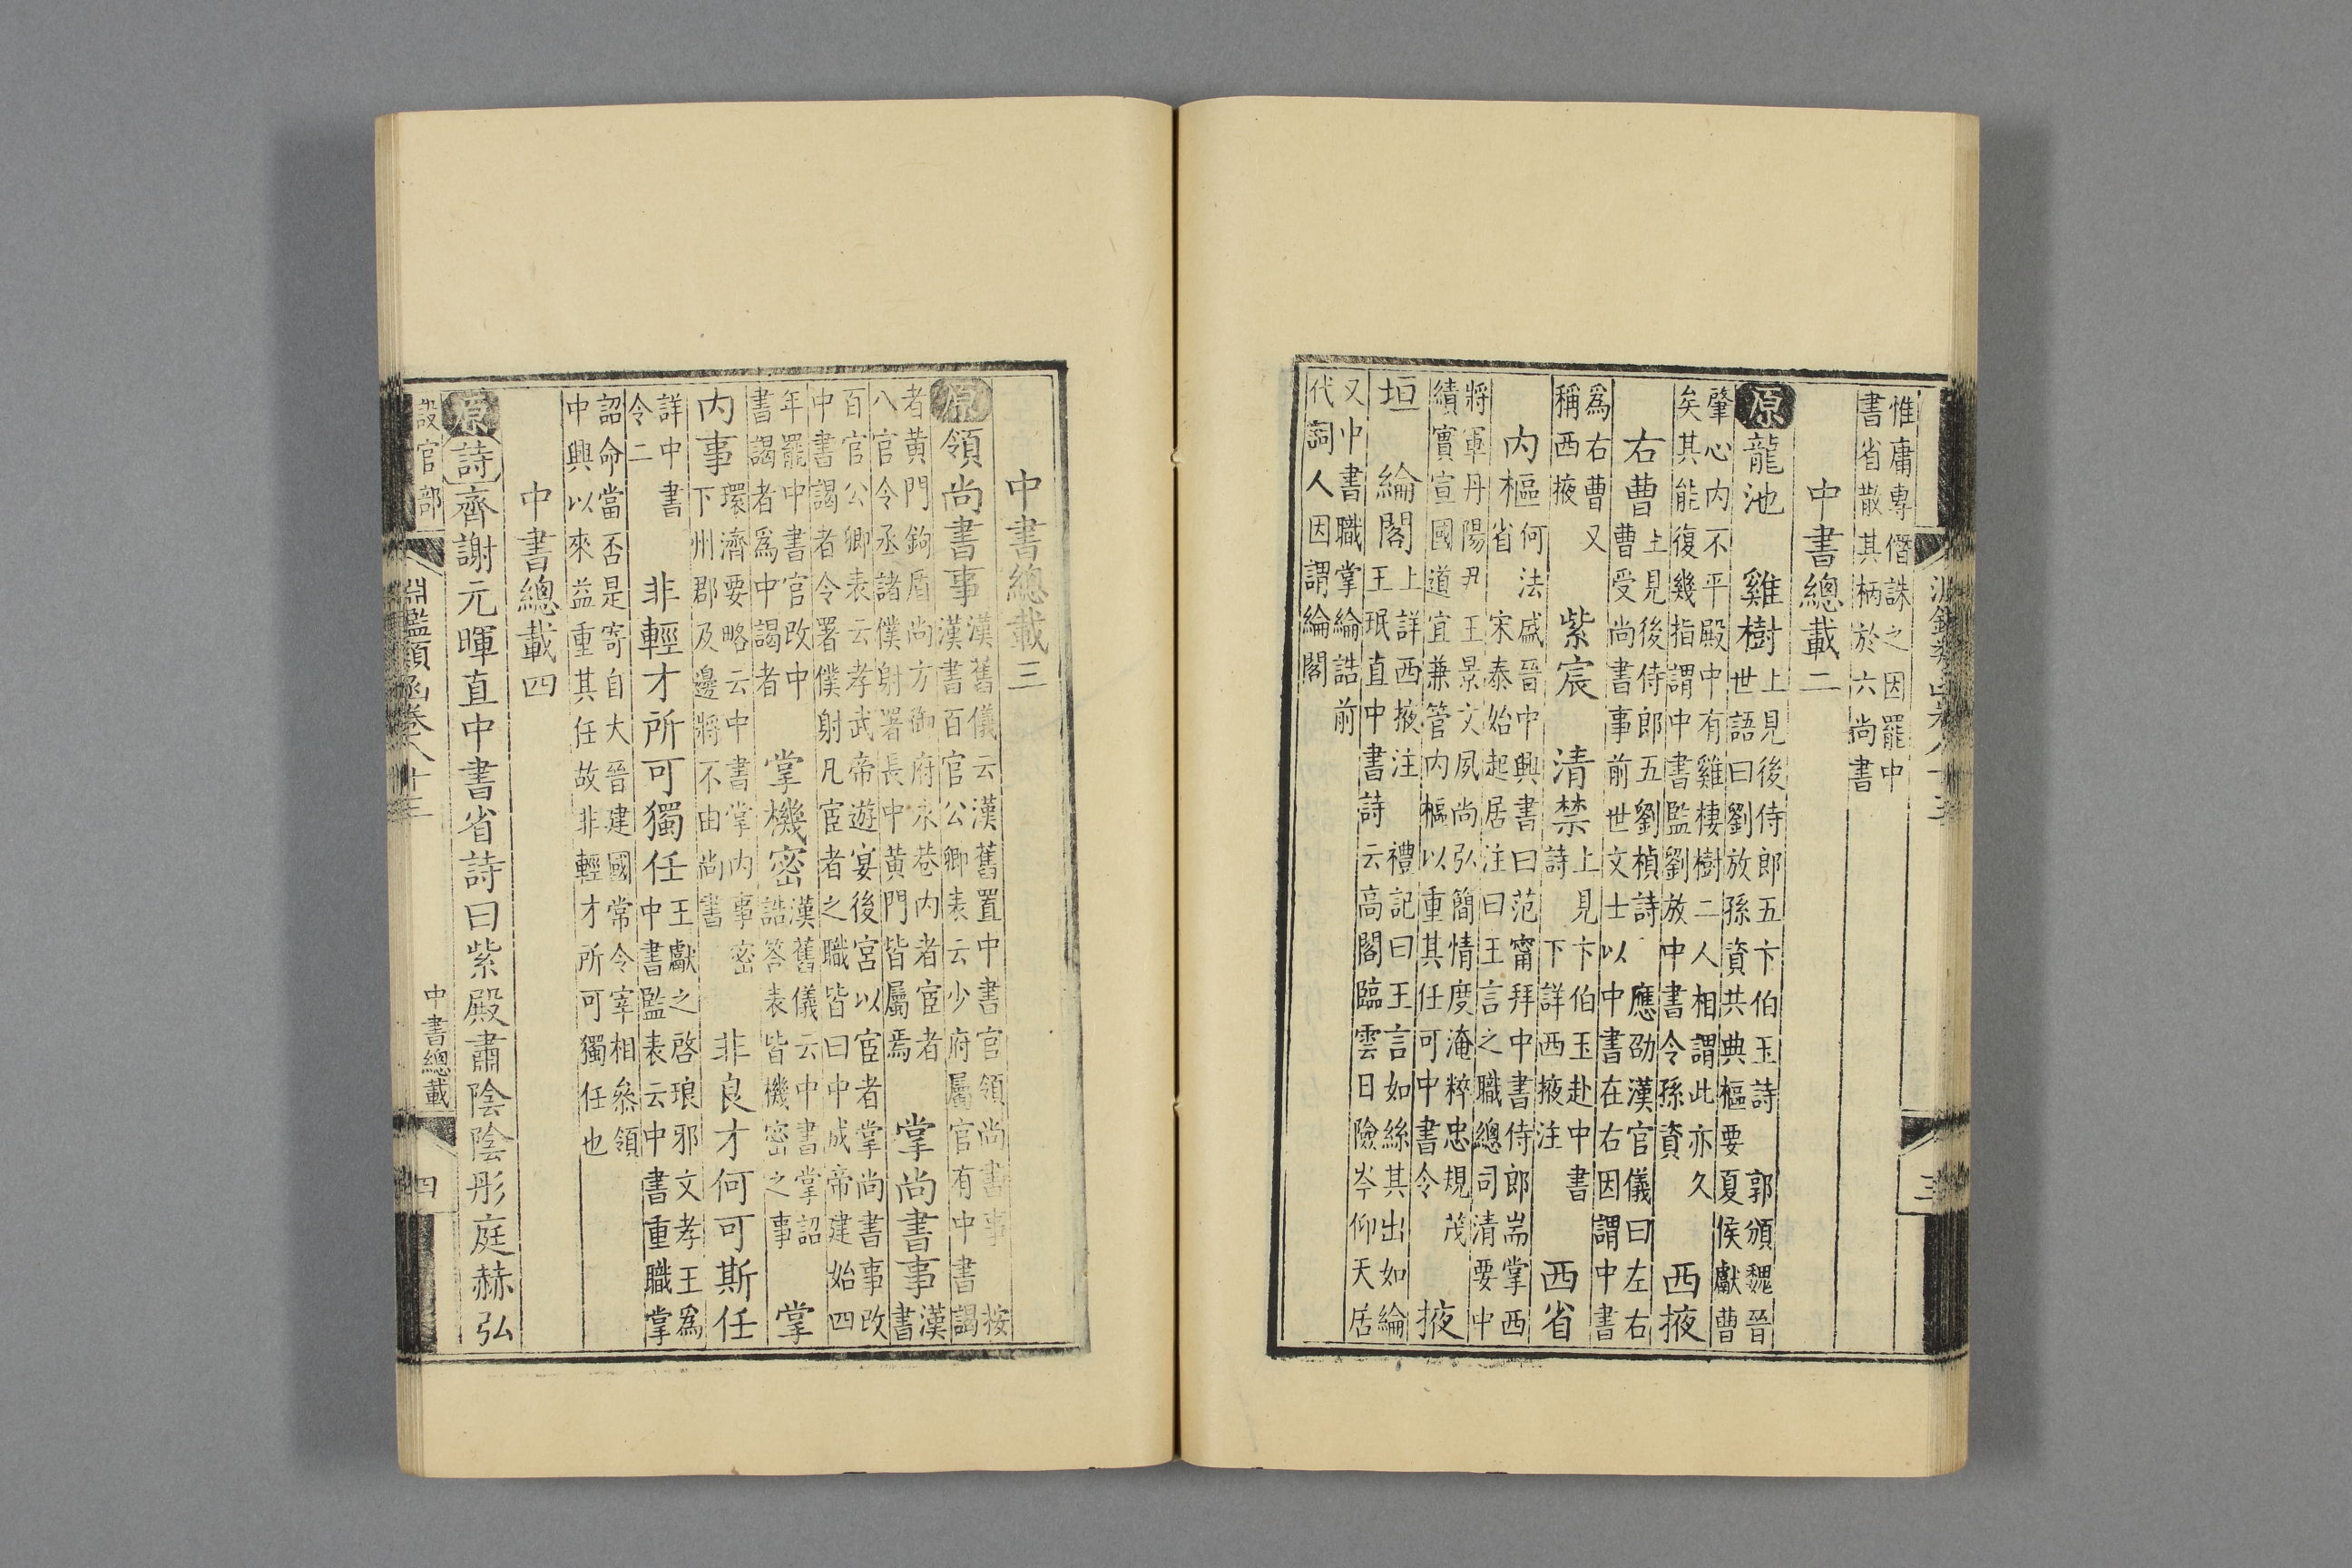 惟庸專僭誅之因罷中
書省散其柄於六尚書
中書總載二
原龍池 雞樹上見後侍郎五卞伯玉詩 郭頒魏晉
世語曰劉放孫資共典樞要夏侯獻曹
肇心内不平殿中有雞棲樹二人相謂此亦久
矣其能復幾指謂中書監劉放中書令孫資 西掖
右曹上見後侍郎五劉楨詩 應劭漢官儀曰左右
曹受尚書事前世文士以中書在右因謂中書
爲右曹又
稱西掖 紫宸 清禁上見卞伯玉赴中書
詩 下詳西掖注 西省
内樞何法盛晉中興書曰范甯拜中書侍郎耑掌西
省 宋泰始起居注曰王言之職總司清要中
將軍丹陽尹王景文夙尚弘簡情度淹粹忠規茂
績實宣國道宜兼管内樞以重其任可中書令 掖
垣 綸閣上詳西掖注 禮記曰王言如絲其出如綸
王珉直中書詩云高閣臨雲日險岑仰天居
又中書職掌綸誥前
代詞人因謂綸閣
三
中書總載三
原領尚書事漢舊儀云漢舊置中書官領尚書事 按
漢書百官公卿表云少府屬官有中書謁
者黃門鉤盾尚方御府永巷内者宦者
八官令丞諸僕射署長中黃門皆屬焉 掌尚書事漢
書
百官公卿表云孝武帝遊宴後宮以宦者掌尚書事改
中書謁者令署僕射凡宦者之職皆曰中成帝建始四
年罷中書官改中
書謁者爲中謁者 掌機密漢舊儀云中書掌詔
誥答表皆機密之事 掌
内事環濟要略云中書掌内事密
下州郡及邊將不由尚書 非良才何可斯任
詳中書
令二 非輕才所可獨任王獻之啓琅邪文孝王爲
中書監表云中書重職掌
詔命當否是寄自大晉建國常令宰相叅領
中興以來益重其任故非輕才所可獨任也
中書總載四
原詩齊謝元暉直中書省詩曰紫殿肅陰陰彤庭赫弘
設官部
淵鑑類函卷八十三
中書總載
四